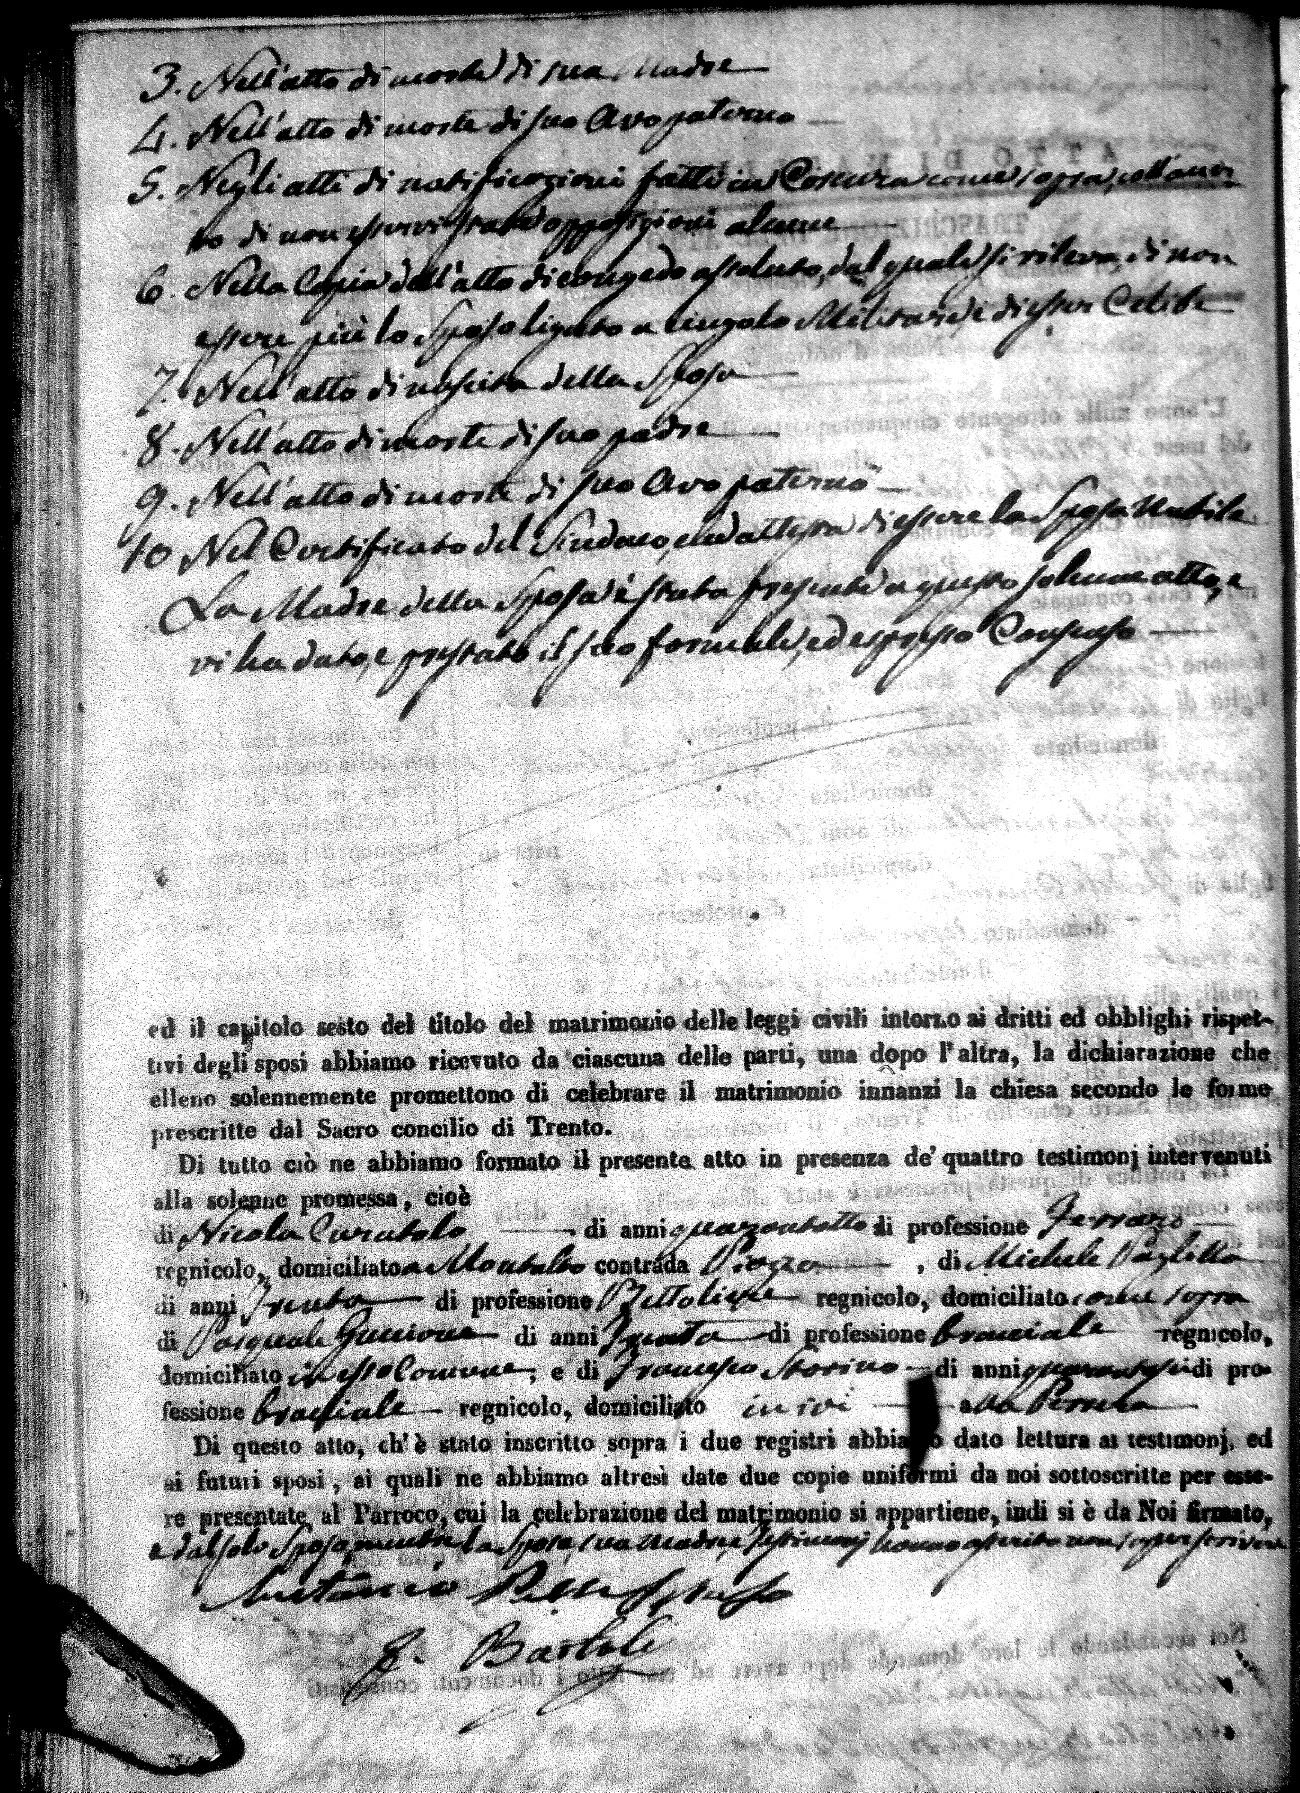 3. Nell'atto di morte di sua Madre
4. Nell'atto di morte di suo Avo paterno
5. Negli atti di notificazioni fatti in Comune come sopra, coll'anno
to di non esservi state opposizioni alcune
6. Nella Copia dell'atto di congedo assoluto, dal quale si rileva, di non
essere più lo Sposo ligato a cingolo Militare, e di esser Celibe
7. Nell'atto di nascita della Sposa
8. Nell'atto di morte di suo padre
9. Nell'atto di morte di suo Avo paterno
10 Nel Certificato del Sindaco, che attesta di essere la Sposa Nubile
La Madre della Sposa è stata presente a questo solenne atto, e
vi ha dato, e prestato il suo formale, ed espresso Consenso
ed il capitolo sesto del titolo del matrimonio delle leggi civili intorno ai dritti ed obblighi rispet-
tivi degli sposi abbiamo ricevuto da ciascuna delle parti, una dopo l'altra, la dichiarazione che
elleno solennemente promettono di celebrare il matrimonio innanzi la chiesa secondo le forme
prescritte dal Sacro concilio di Trento.
Di tutto ciò ne abbiamo formato il presente atto in presenza de' quattro testimonj intervenuti
alla solenne promessa, cioè
di Nicola Curatolo di anni quarantotto di professione Ferraro
regnicolo, domiciliato a Montalto contrada Piazza, di Michele Paglilla
di anni Trenta di professione Bettoliere regnicolo, domiciliato come sopra
di Pasquale di anni Trenta di professione bracciale regnicolo,
domiciliato in esso Comune, e di Francesco Storino di anni quarantasei di pro-
fessione bracciale regnicolo, domiciliato in ivi
Di questo atto, ch'è stato inscritto sopra i due registri abbiamo dato lettura ai testimonj, ed
ai futuri sposi, ai quali ne abbiamo altresì date due copie uniformi da noi sottoscritte per esse-
re presentate al Parroco, cui la celebrazione del matrimonio si appartiene, indi si è da Noi firmato,
e dal solo Sposo, mentre la Sposa, sua madre, e Testimonj hanno asserito non saper scrivere
Antonio Sposo
F. Bartoli